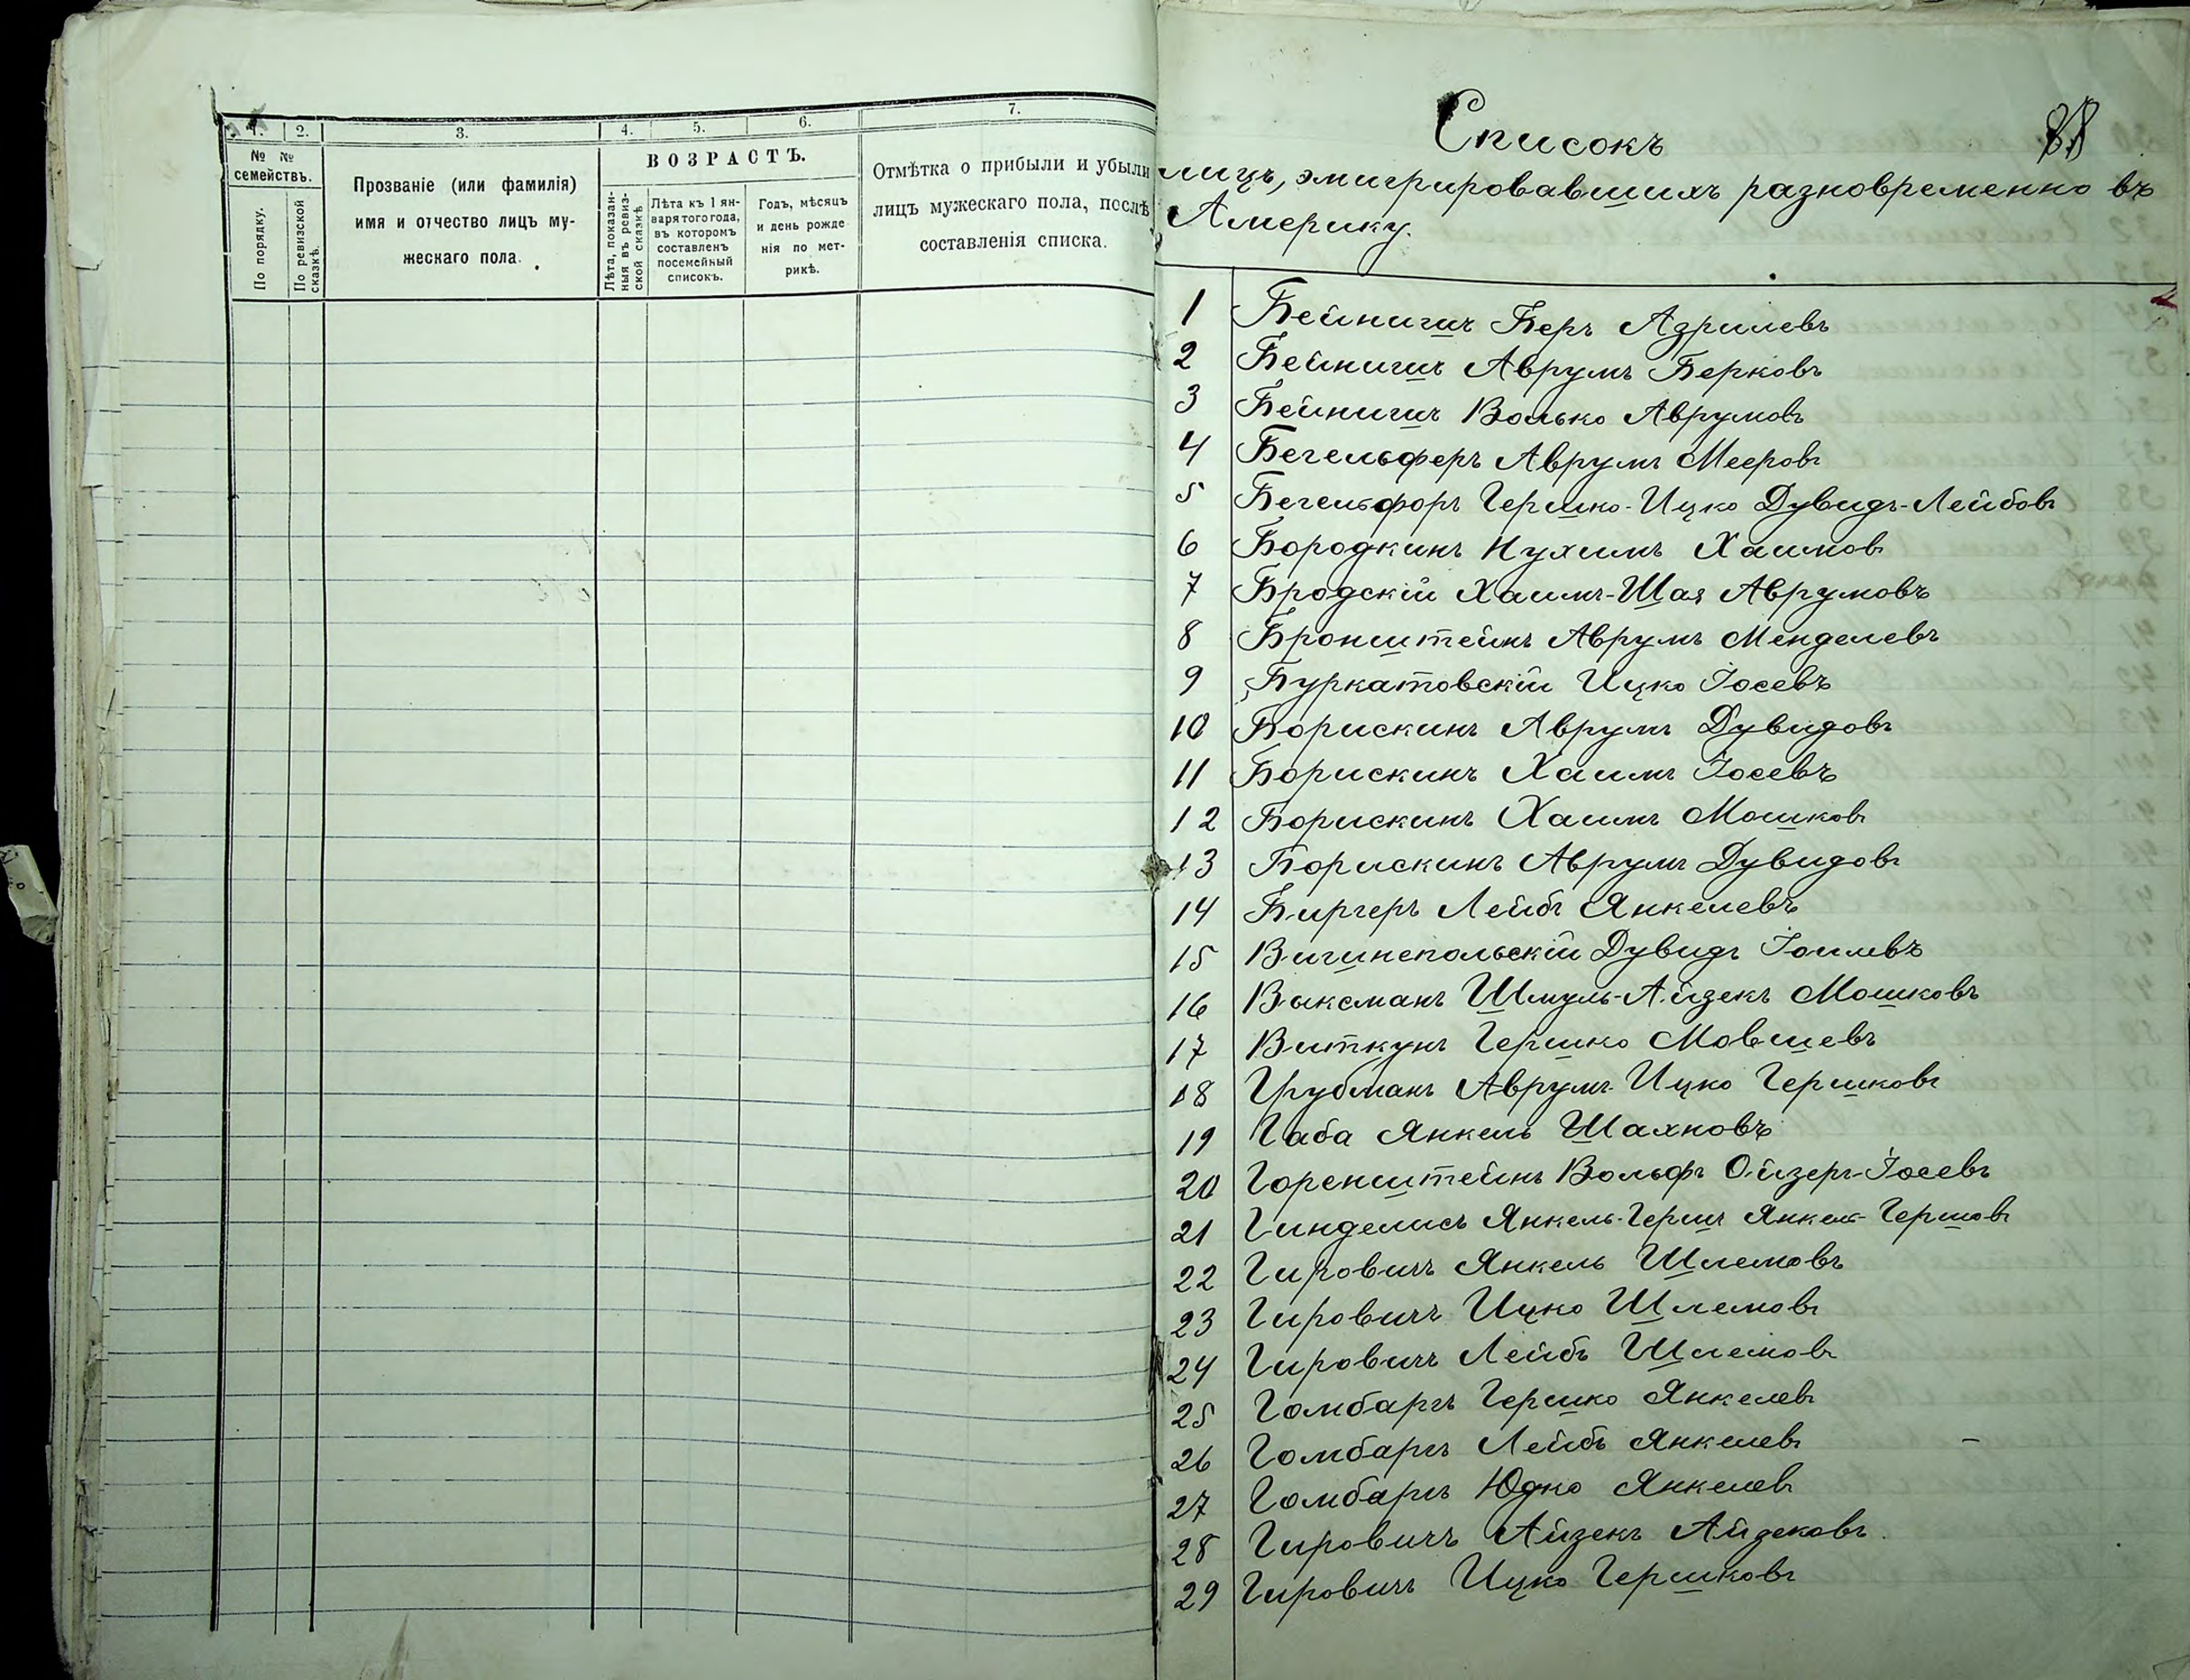 1. 2. 3. 4. 5. 6. 7.
№ № семействъ.
По порядку.
По ревизской сказкѣ.
Прозваніе (или фамилія)
имя и отчество лицъ му-
жескаго пола.
ВОЗРАСТЪ.
Лѣта, показан-
ныя въ ревиз-
ской сказкѣ
Лѣта къ 1 ян-
варя того года,
въ которомъ
составленъ
посемейный
списокъ.
Годъ, мѣсяцъ
и день рожде
нія по мет-
рикѣ.
Отмѣтка о прибыли и убыли
лицъ мужескаго пола, послѣ
составленія списка.
Списокъ
лицъ, эмигрировавшихъ разновременно въ
Америку.
1 Бейнигич Беръ Азрилевъ
2 Бейнигич Аврумъ Берковъ
3 Бейнигич Волько Аврумовъ
4 Бегельферъ Аврумъ Мееровъ
5 Бегельфоръ Гершко-Ицко Дувидъ-Лейбовъ
6 Бородкинъ Нухимъ Хаимовъ
7 Бродскій Хаимъ-Шая Аврумовъ
8 Бронштейнъ Аврумъ Менделевъ
9 Буркатовскій Ицко Іосевъ
10 Борискинъ Аврумъ Дувидовъ
11 Борискинъ Хаимъ Іосевъ
12 Борискинъ Хаимъ Мошковъ
13 Борискинъ Аврумъ Дувидовъ
14 Биргеръ Лейбъ Янкелевъ
15 Дувидъ Іоилевъ
16 Выксманъ Шмуль-Айзекъ Мошковъ
17 Виткунъ Гершко Мовшевъ
18 Грубманъ Аврумъ-Ицко Гершковъ
19 Габа Янкель Шахновъ
20 Горенштейнъ Вольфъ Ойзеръ-Іосевъ
21 Гинделисъ Янкель-Гершъ Янкель-Гершовъ
22 Гировичъ Янкель Шлемовъ
23 Гировичъ Ицко Шлемовъ
24 Гировичъ Лейбъ Шлемовъ
25 Гомбаргъ Гершко Янкелевъ
26 Гомбаргъ Лейбъ Янкелевъ
27 Гомбаргъ Юдко Янкелевъ
28 Гировичъ Айзекъ Айзековъ
29 Гировичъ Ицко Гершковъ